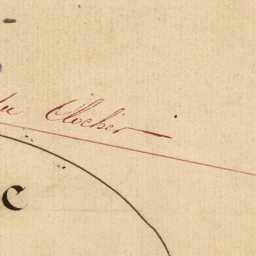 du Clocher
C